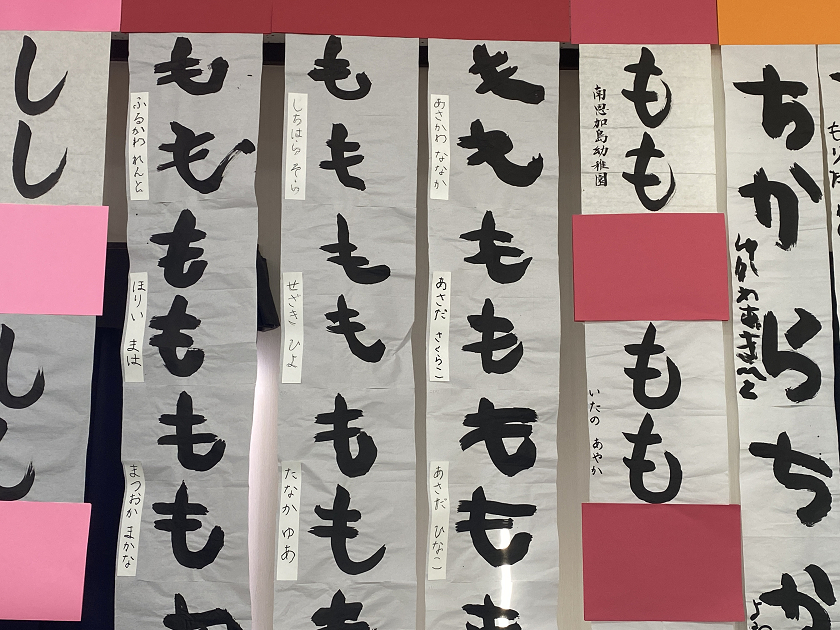 もも
南恩加島幼稚園
もも
いたの あやか
もも
あさかわ ななか
もも
あさだ さくらこ
もも
あさだ ひなこ
もも
しちはら そら
もも
せざき ひよ
もも
たなか ゆあ
もも
ふるかわ れんと
もも
ほりい まは
もも
まつおか まかな
しし
ちから
ちか